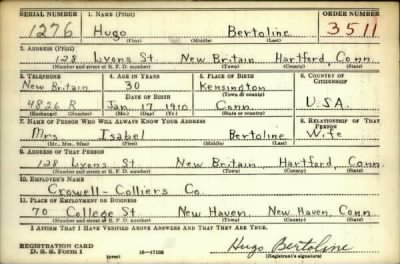 SERIAL NUMBER 1. NAME (Print) ORDER NUMBER
1276 Hugo Bertoline 3511
(First) (Middle) (Last)
2. ADDRESS (Print)
128 Lyons St. New Britain Hartford, Conn.
(Number and street or R. F. D. number) (Town) (County) (State)
3. TELEPHONE 4. AGE IN YEARS 5. PLACE OF BIRTH 6. COUNTRY OF CITIZENSHIP
New Britain 30 Kensington
DATE OF BIRTH (Town or county)
4826 R Jan 17 1910 Conn. U.S.A.
(Exchange) (Number) (Mo.) (Day) (Yr.) (State or country)
7. NAME OF PERSON WHO WILL ALWAYS KNOW YOUR ADDRESS 8. RELATIONSHIP OF THAT PERSON
Mrs. Isabel Bertoline Wife
(Mr., Mrs., Miss) (First) (Middle) (Last)
9. ADDRESS OF THAT PERSON
128 Lyons St New Britain Hartford, Conn
(Number and street or R. F. D. number) (Town) (County) (State)
10. EMPLOYER'S NAME
Crowell-Colliers Co.
11. PLACE OF EMPLOYMENT OR BUSINESS
70 College St New Haven, New Haven, Conn.
(Number and street or R. F. D. number) (Town) (County) (State)
I AFFIRM THAT I HAVE VERIFIED ABOVE ANSWERS AND THAT THEY ARE TRUE.
REGISTRATION CARD
D. S. S. Form 1 16-17105 Hugo Bertoline
(over) (Registrant's signature)